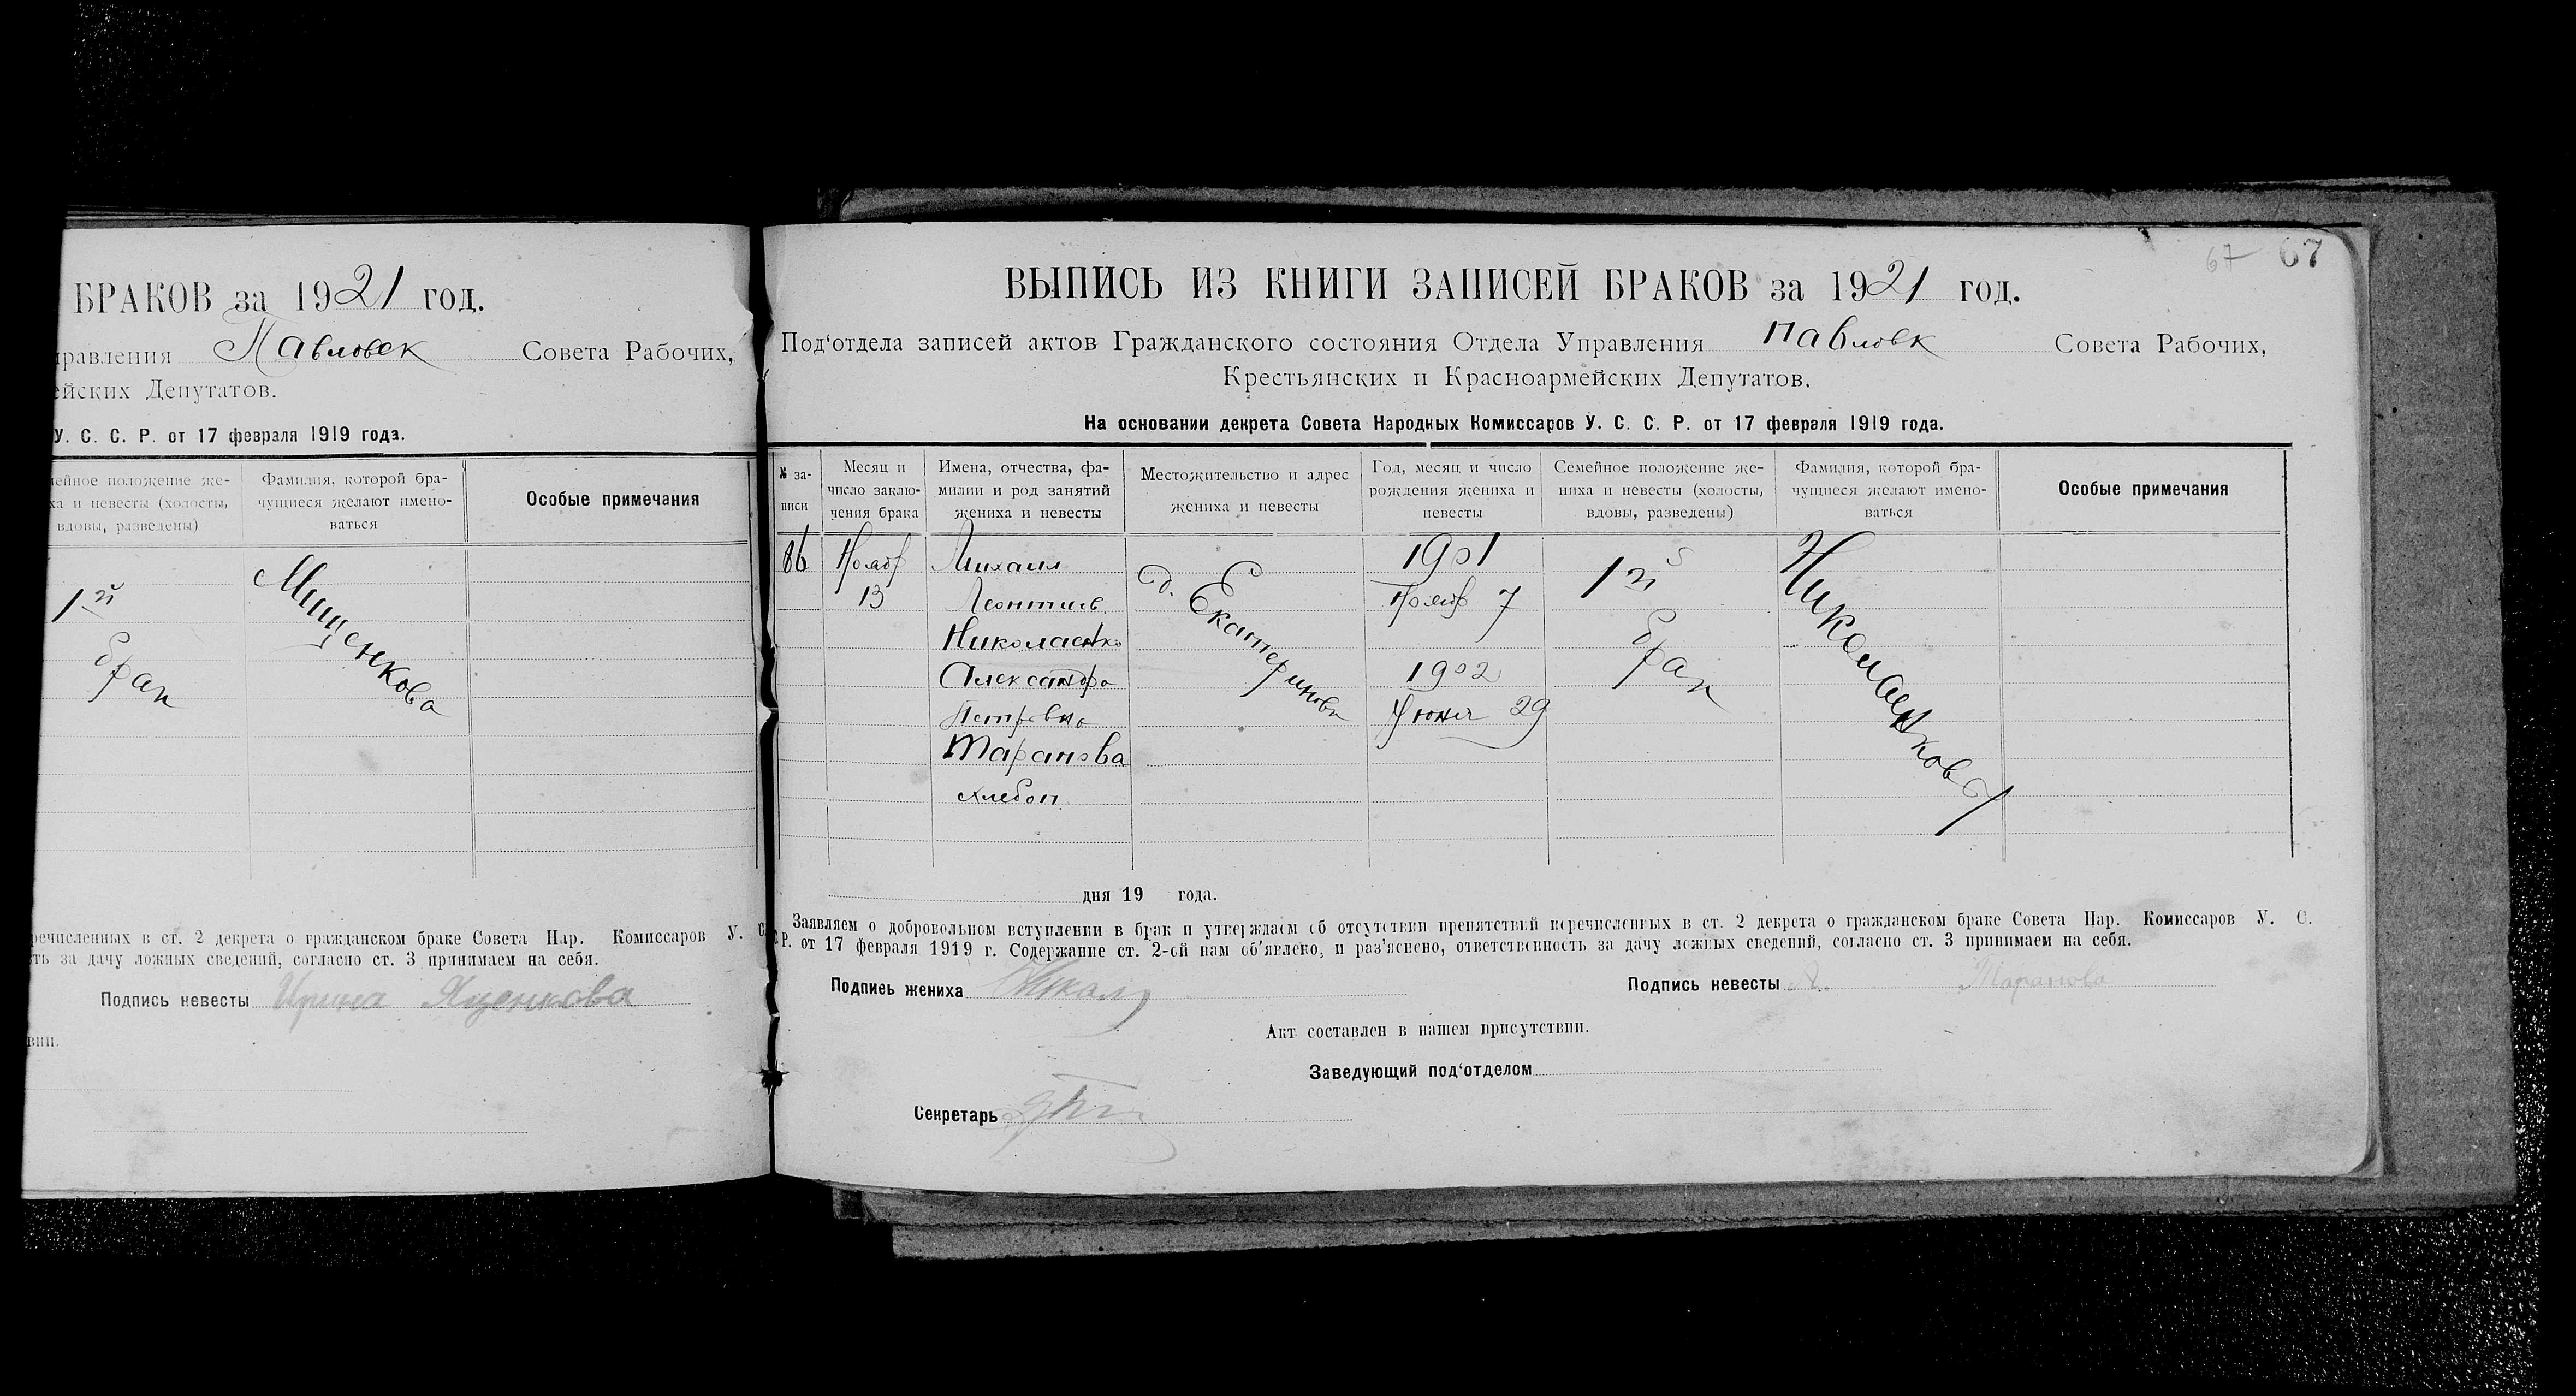 БРАКОВ за 1921 год.
правления Павловск Совета Рабочих,
ейских Депутатов.
У. С. С. Р. от 17 февраля 1919 года.
ейное положение же-
ха и невесты (холосты,
вдовы, разведены)
Фамилия, которой бра-
чущиеся желают имено-
ваться
Особые примечания
1й
брак
Мищенкова
речисленных в ст. 2 декрета о гражданском браке Совета Нар. Комиссаров У. С.
ть за дачу ложных сведений, согласно ст. 3 принимаем на себя.
Подпись невесты Ирина Яценкова
вии.
67 67
ВЫПИСЬ ИЗ КНИГИ ЗАПИСЕЙ БРАКОВ за 1921 год.
Под‘отдела записей актов Гражданского состояния Отдела Управления Павловск Совета Рабочих,
Крестьянских и Красноармейских Депутатов.
На основании декрета Совета Народных Комиссаров У. С. С. Р. от 17 февраля 1919 года.
№ за-
писи
Месяц и
число заклю-
чения брака
Имена, отчества, фа-
милии и род занятий
жениха и невесты
Местожительство и адрес
жениха и невесты
Год, месяц и число
рождения жениха и
невесты
Семейное положение же-
ниха и невесты (холосты,
вдовы, разведены)
Фамилия, которой бра-
чущиеся желают имено-
ваться
Особые примечания
86
Нояб
13
Михаил
Леонтиев
Николаенко
Александра
Петровна
Таранова
хлебоп
д. Екатериновк
1901
Нояб 7
1902
Июня 29
1й
брак
Николаенковы
дня 19 года.
Заявляем о добровольном вступлении в брак и утверждаем об отсутствии препятствий перечисленных в ст. 2 декрета о гражданском браке Совета Нар. Комиссаров У. С.
С. Р. от 17 февраля 1919 г. Содержание ст. 2-ой нам об'явлено, и раз'яснено, ответственность за дачу ложных сведений, согласно ст. 3 принимаем на себя.
Подпись жениха
Подпись невесты А. Таранова
Акт составлен в нашем присутствии.
Заведующий под‘отделом
Секретарь